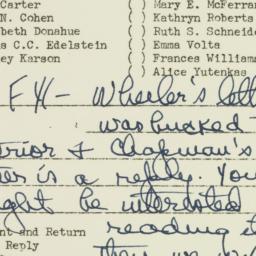 Carter ( ) Mary E. McFerran
N. Cohen ( ) Kathryn Roberts
beth Donahue ( ) Ruth S. Schneide
s C.C. Edelstein ( ) Emma Volta
ey Karson ( ) Frances Williams
( ) Alice Yutenkas
FYI - Wheeler's lett
was bucked T
erior & Chapman's
er is a reply. You
ght be interested
nt and Return
reading it
Reply